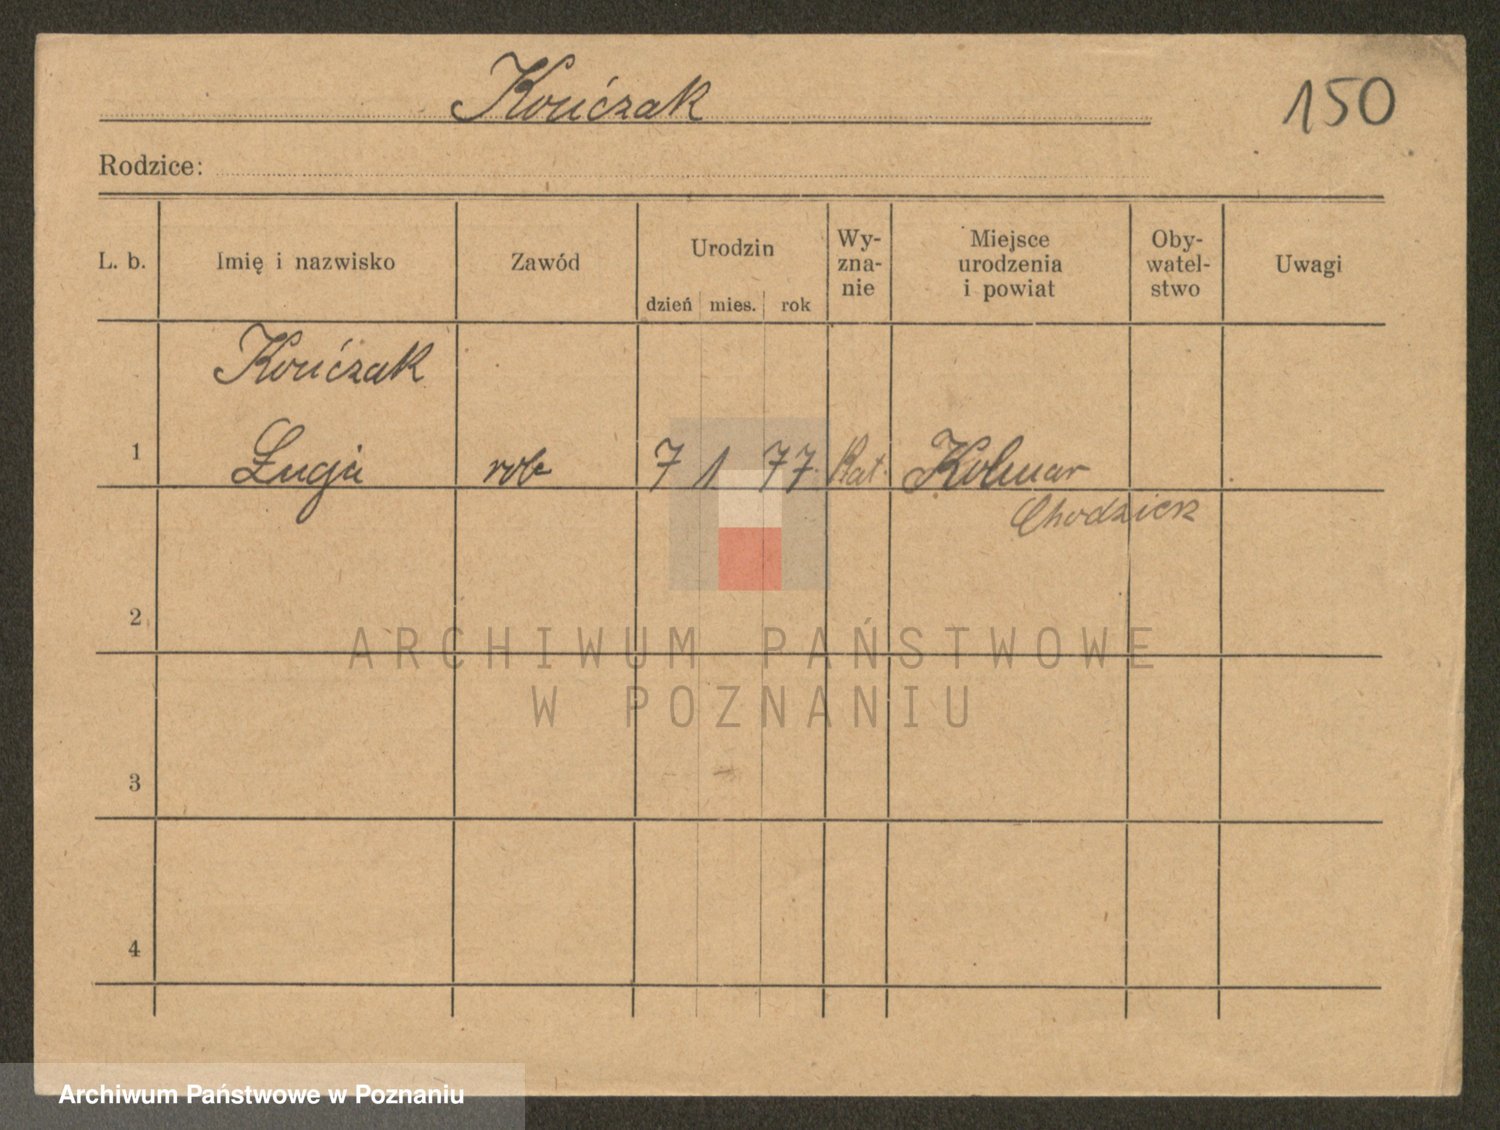 Kończak
150
Rodzice:
L. b.
Imię i nazwisko
Zawód
Urodzin
dzień mies. rok
Wy-
zna-
nie
Miejsce
urodzenia
i powiat
Oby-
watel-
stwo
Uwagi
Kończak
1 Łucja rob 7 1 77 Kat. Kolmar
Chodzież
2
3
4
ARCHIWUM PAŃSTWOWE
W POZNANIU
Archiwum Państwowe w Poznaniu